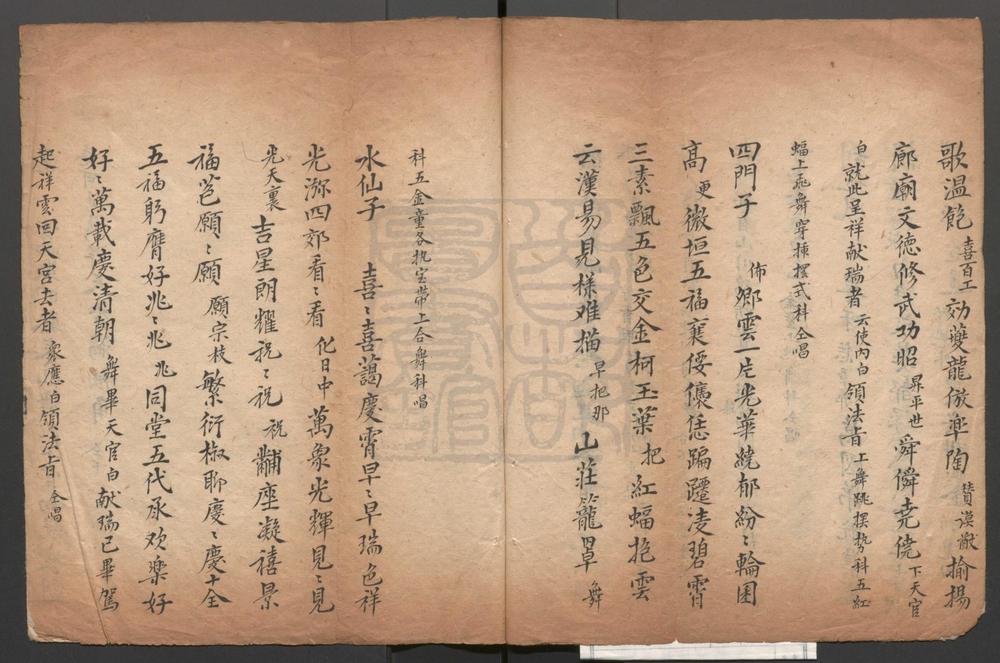 歌溫飽喜百工効夔龍傲臯陶賛謨猷揄揚
廊廟文德修武功昭昇平世舜僯堯僥下天官
白就此呈祥献瑞者云使內白領法旨上舞跳摆势科五紅
蝠上飛舞穿揷摆式科仝唱
四門子佈卿雲一片光華繞郁紛〻輪囷
高更微垣五福襄優儴恁蹁躚凌碧霄
三素飄五色交金柯玉葉把紅蝠抱雲
云漢昜見様难描早把那山莊籠罩舞
科五金童各执宝帶上合舞科唱
水仙子喜〻喜藹慶霄早〻早瑞色祥
光瀰四郊看〻看化日中萬象光輝見〻見
光天裏吉星朗耀祝〻祝祝黼座凝禧景
福苞願〻願願宗枝繁衍椒聊慶〻慶十全
五福躬膺好兆〻兆兆同堂五代承欢楽好
好〻萬載慶清朝舞畢天官白献瑞已畢駕
起祥雲回天宮去者衆應白領法旨仝唱